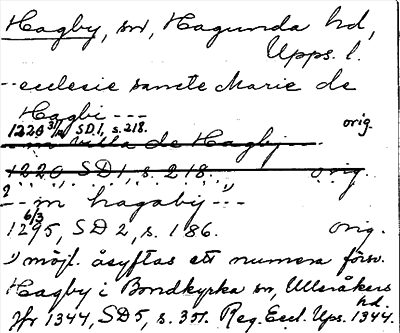 Hagby, sn, Hagunda hd,
Upps. l.
--ecclesie sancte Marie de
Hagbi ---
1220 3/4 SD 1, s. 218. orig.
-- in villa de Hagby --
1220 SD 1, s. 218. orig.
2 --in hagaby--1)
1295 6/3, SD 2, s. 186. orig.
1) möjl. åsyftas ett numera försv.
Hagby i Bondkyrka sn, Ulleråkers
hd.
Jfr 1344, SD 5, s. 307. Reg. Eccl. Ups. 1344.